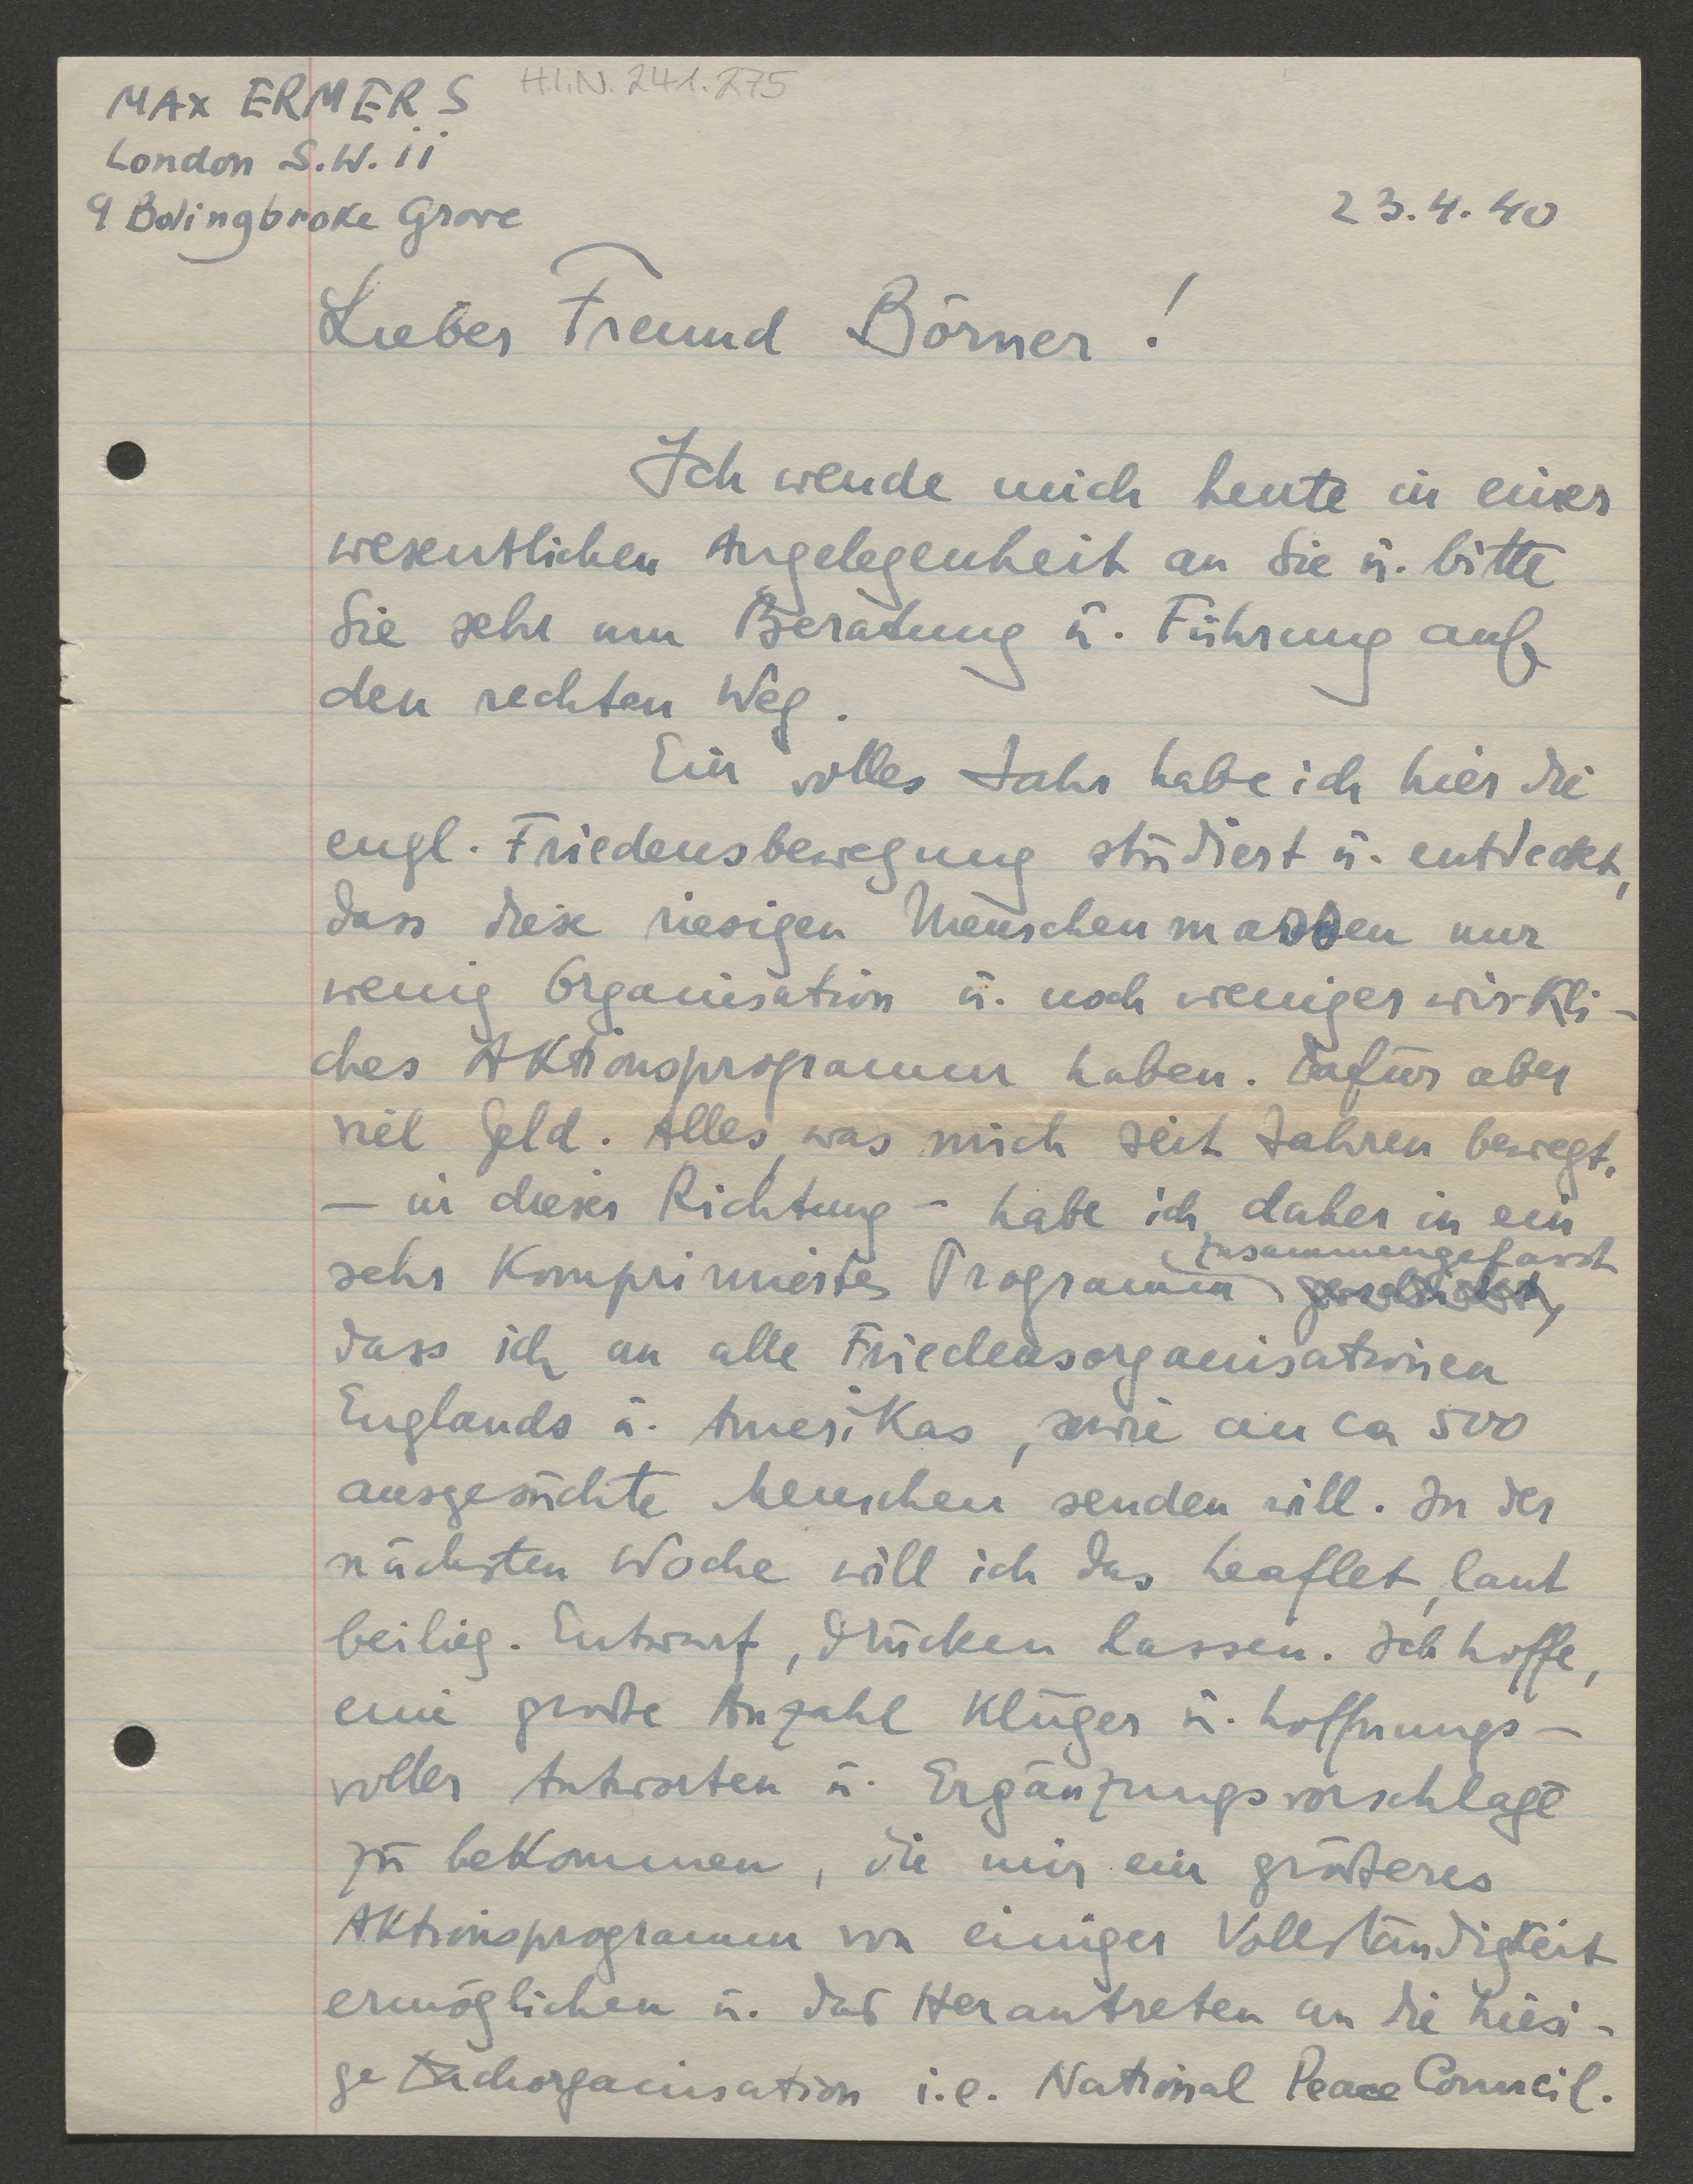 MAX ERMERS
H.I.N. 241.275
London S.W. ii
9 Bolingbroke Grove
23.4.40
Lieber Freund Börner!
Ich wende mich heute in einer
wesentlichen Angelegenheit an Sie u. bitte
Sie sehr um Beratung u. Führung auf
den rechten Weg.
Ein volles Jahr habe ich hier die
engl. Friedensbewegung studiert u. entdeckt,
dass diese riesigen Menschenmassen nur
wenig Organisation u. noch weniger wirkli-
ches Aktionsprogramm haben. Dafür aber
viel Geld. Alles, was mich seit Jahren bewegt,
– in dieser Richtung – habe ich daher in ein
zusammengefasst
sehr komprimiertes Programm
dass ich an alle Friedensorganisationen
Englands u. Amerikas, sowie an ca 500
ausgesuchte Menschen senden will. In der
nächsten Woche will ich das Leaflet, laut
beilieg. Entwurf, drucken lassen. Ich hoffe,
eine große Anzahl kluger u. hoffnungs-
voller Antworten u. Ergänzungsvorschlage
zu bekommen, die mir ein größeres
Aktionsprogramm von einiger Vollständigkeit
ermöglichen u. das Herantreten an die hiesi-
ge Dachorganisation i.e. National Peace Council.